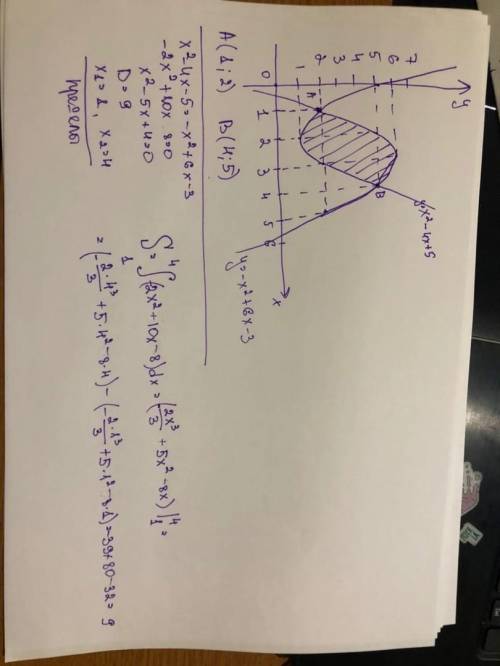 y
7
6
5
4
3
2
1
0
1 2 3 4 5 6 x
A
B
y=x²-4x+5
y=-x²+6x-3
A(1;2) B(4;5)
x²-4x-5=-x²+6x-3
-2x²+10x-8=0
x²-5x+4=0
D=9
x₁=1, x₂=4
пределы
S=∫₁⁴(-2x²+10x-8)dx=(-2x³/3+5x²-8x)|₁⁴=
=(-2·4³/3+5·4²-8·4)-(-2·1³/3+5·1²-8·1)=-39+80-32=9